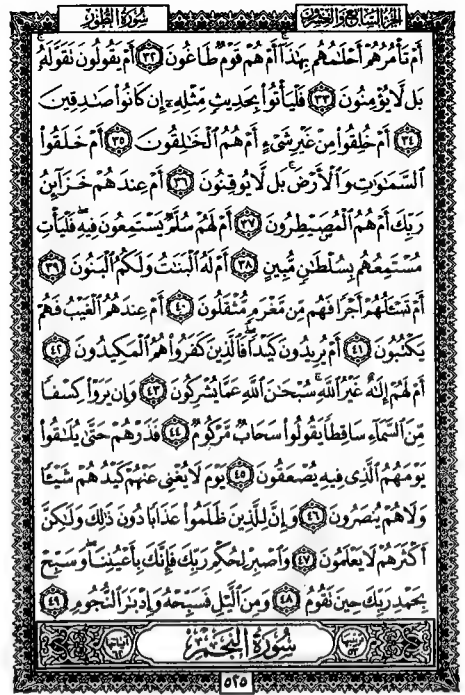 سورة الطور الجزء السابع والعشرون
أَمْ تَأْمُرُهُمْ أَحْلَٰمُهُم بِهَٰذَآ أَمْ هُمْ قَوْمٌ طَاغُونَ ٣٢ أَمْ يَقُولُونَ تَقَوَّلَهُۥ
بَل لَّا يُؤْمِنُونَ ٣٣ فَلْيَأْتُوا۟ بِحَدِيثٍ مِّثْلِهِۦٓ إِن كَانُوا۟ صَٰدِقِينَ
٣٤ أَمْ خُلِقُوا۟ مِنْ غَيْرِ شَىْءٍ أَمْ هُمُ الْخَٰلِقُونَ ٣٥ أَمْ خَلَقُوا۟
السَّمَٰوَٰتِ وَالْأَرْضَ ۚ بَل لَّا يُوقِنُونَ ٣٦ أَمْ عِندَهُمْ خَزَآئِنُ
رَبِّكَ أَمْ هُمُ الْمُصَۣيْطِرُونَ ٣٧ أَمْ لَهُمْ سُلَّمٌ يَسْتَمِعُونَ فِيهِ ۖ فَلْيَأْتِ
مُسْتَمِعُهُم بِسُلْطَٰنٍ مُّبِينٍ ٣٨ أَمْ لَهُ الْبَنَٰتُ وَلَكُمُ الْبَنُونَ ٣٩
أَمْ تَسْـَٔلُهُمْ أَجْرًا فَهُم مِّن مَّغْرَمٍ مُّثْقَلُونَ ٤٠ أَمْ عِندَهُمُ الْغَيْبُ فَهُمْ
يَكْتُبُونَ ٤١ أَمْ يُرِيدُونَ كَيْدًا ۖ فَالَّذِينَ كَفَرُوا۟ هُمُ الْمَكِيدُونَ ٤٢
أَمْ لَهُمْ إِلَٰهٌ غَيْرُ اللَّهِ ۚ سُبْحَٰنَ اللَّهِ عَمَّا يُشْرِكُونَ ٤٣ وَإِن يَرَوْا۟ كِسْفًا
مِّنَ السَّمَآءِ سَاقِطًا يَقُولُوا۟ سَحَابٌ مَّرْكُومٌ ٤٤ فَذَرْهُمْ حَتَّىٰ يُلَٰقُوا۟
يَوْمَهُمُ الَّذِى فِيهِ يُصْعَقُونَ ٤٥ يَوْمَ لَا يُغْنِى عَنْهُمْ كَيْدُهُمْ شَيْـًٔا
وَلَا هُمْ يُنصَرُونَ ٤٦ وَإِنَّ لِلَّذِينَ ظَلَمُوا۟ عَذَابًا دُونَ ذَٰلِكَ وَلَٰكِنَّ
أَكْثَرَهُمْ لَا يَعْلَمُونَ ٤٧ وَاصْبِرْ لِحُكْمِ رَبِّكَ فَإِنَّكَ بِأَعْيُنِنَا ۖ وَسَبِّحْ
بِحَمْدِ رَبِّكَ حِينَ تَقُومُ ٤٨ وَمِنَ الَّيْلِ فَسَبِّحْهُ وَإِدْبَٰرَ النُّجُومِ ٤٩
سورة النجم
٥٢٥